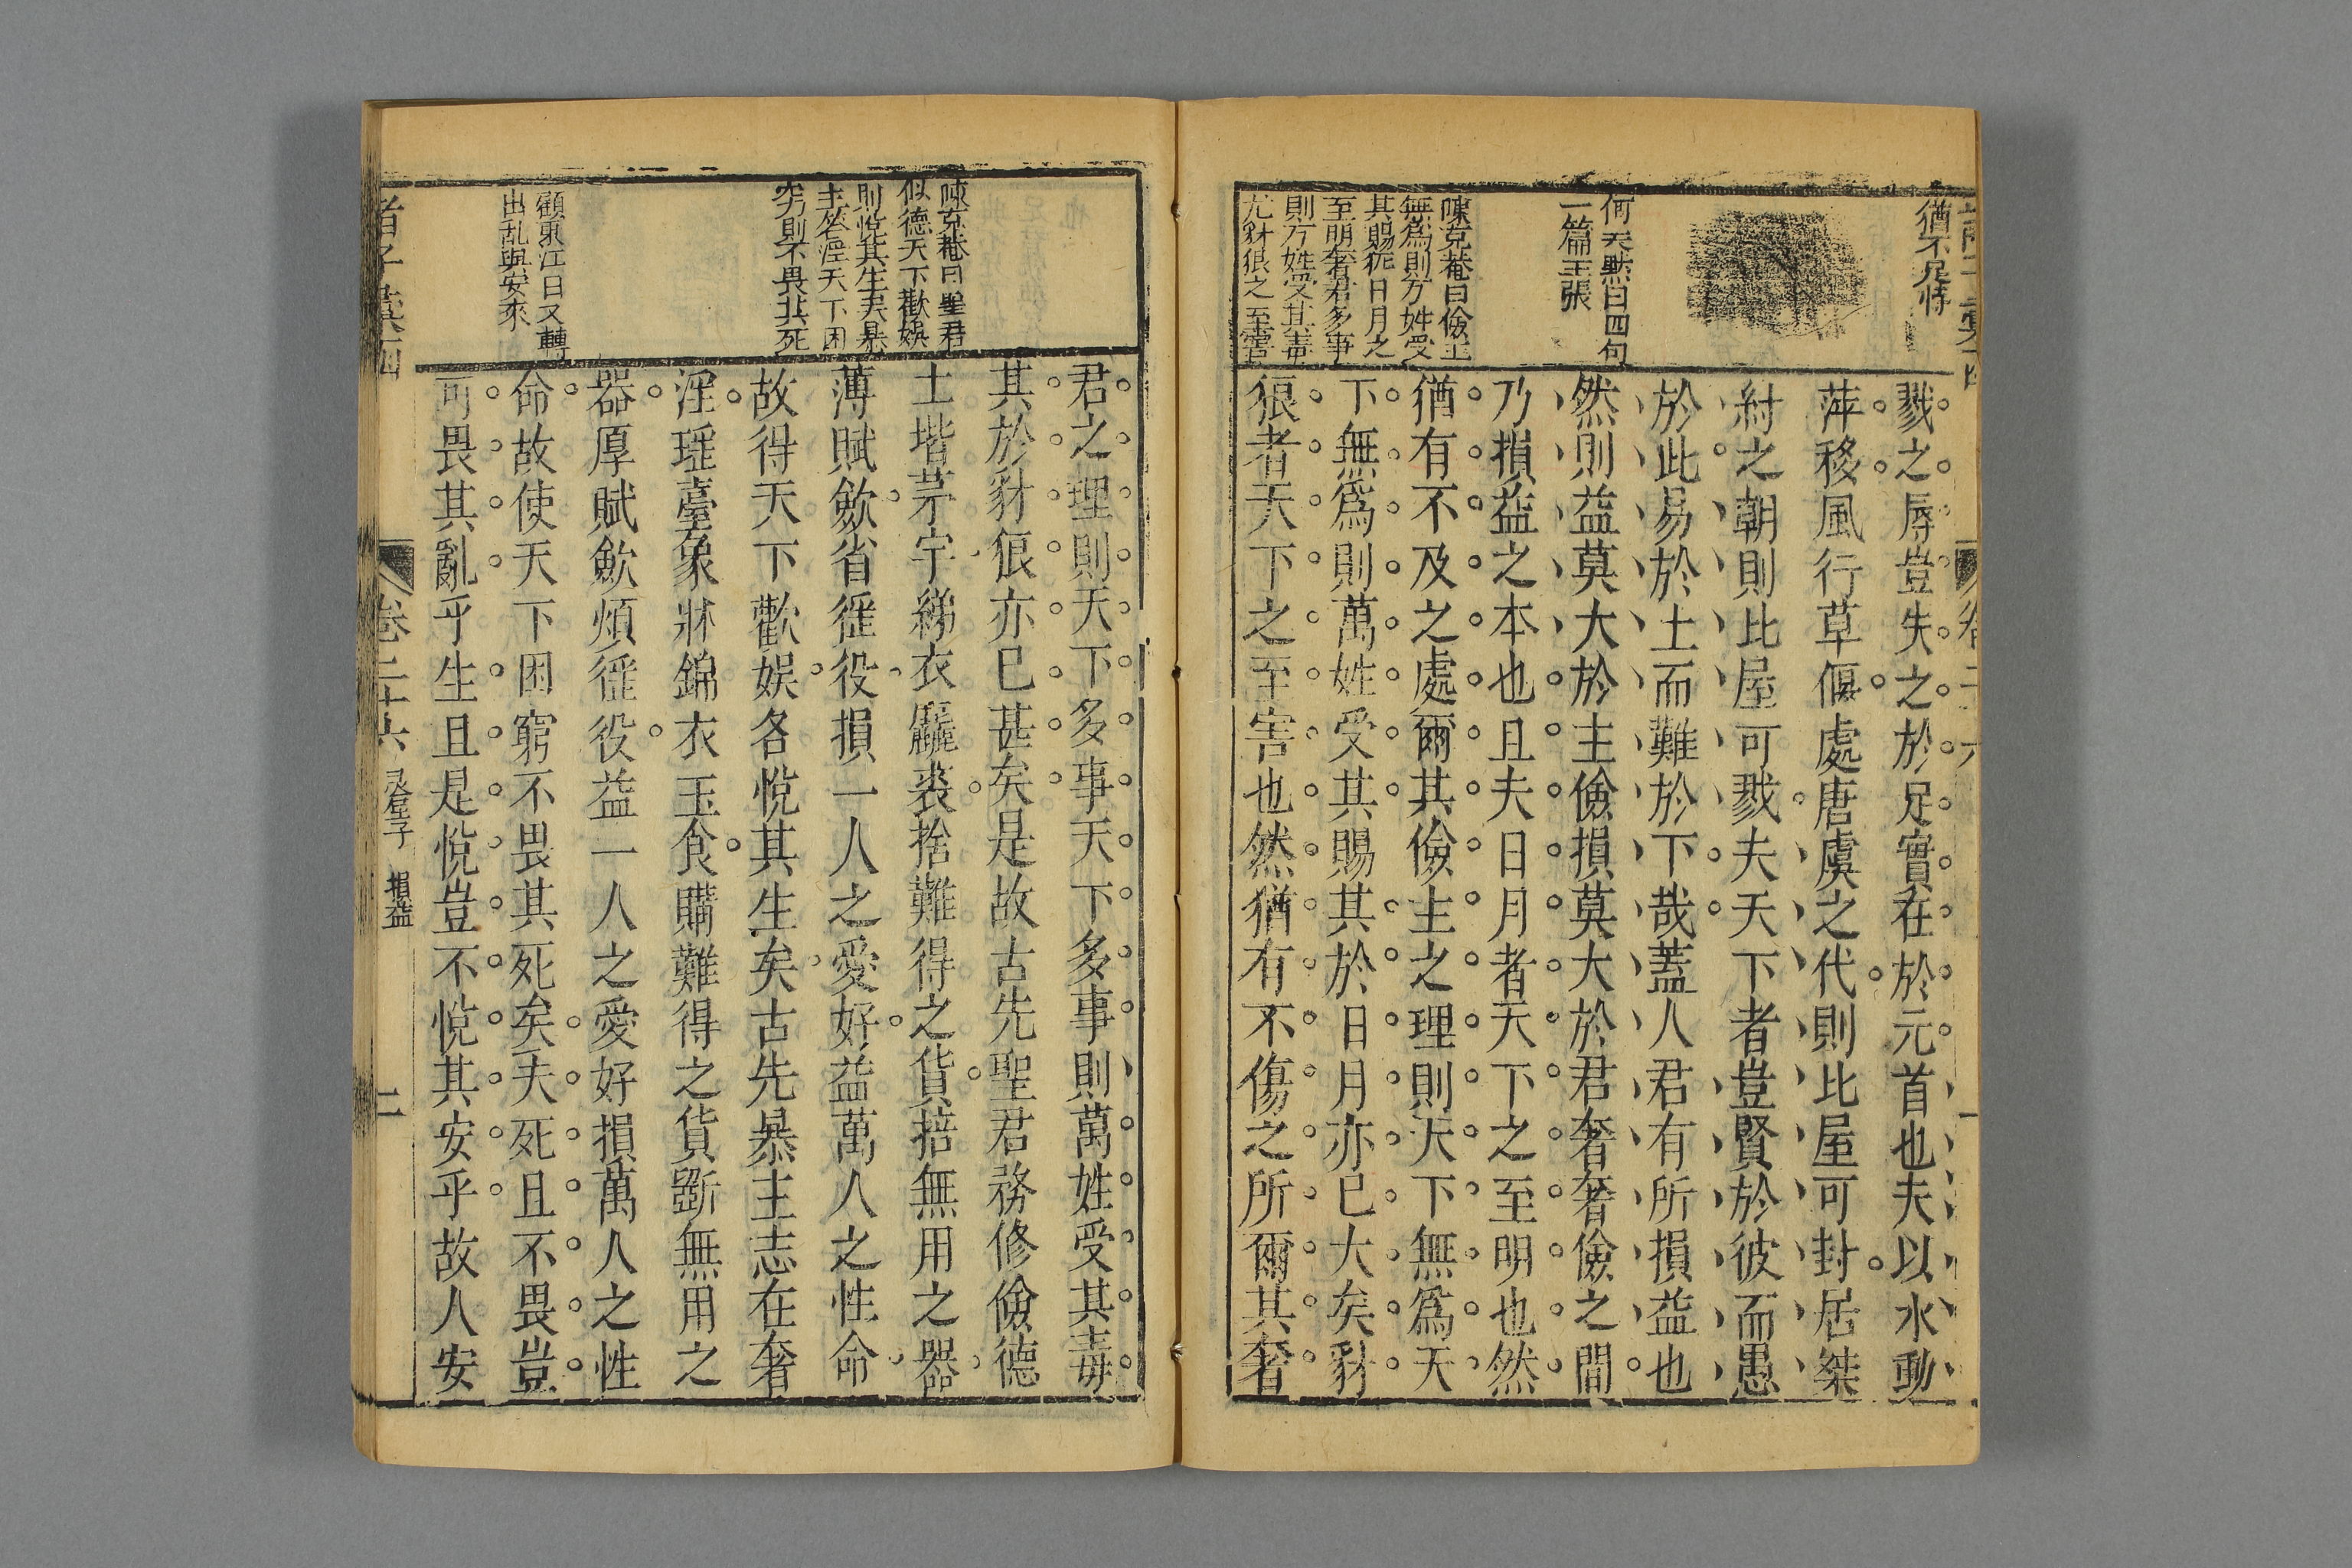 猶不足恃
何天熙曰四句
一篇主張
陳克菴曰儉主
無為則万姓受
其賜犹日月之
至明奢君多事
則万姓受其毒
尤豺狼之至害
戮之辱豈失之於足實在於元首也夫以水動
萍移風行草偃處唐虞之代則比屋可封居桀
紂之朝則比屋可戮夫天下者豈賢於彼而愚
於此易於士而難於下哉蓋人君有所損益也
然則益莫大於主儉損莫大於君奢奢儉之間
乃損益之本也且夫日月者天下之至明也然
猶有不及之處爾其儉主之理則天下無爲天
下無爲則萬姓受其賜其於日月亦已大矣豺
狼者天下之至害也然猶有不傷之所爾其奢
陳克菴曰聖君
似德天下歡娛
則悅其生矣暴
主奢淫天下困
窮則不畏其死
顧東江曰又轉
出乱與安來
君之理則天下多事天下多事則萬姓受其毒
其於豺狼亦已甚矣是故古先聖君務修儉德
土堦茅宇綈衣麤裘捨難得之貨掊無用之器
薄賦歛省徭役損一人之愛好益萬人之性命
故得天下歡娛各悅其生矣古先暴主志在奢
淫瑶臺象牀錦衣玉食購難得之貨斲無用之
器厚賦歛煩徭役益一人之愛好損萬人之性
命故使天下困窮不畏其死矣夫死且不畏豈
可畏其亂乎生且是悅豈不悅其安乎故人安
卷二十六 灵星子 損益 二